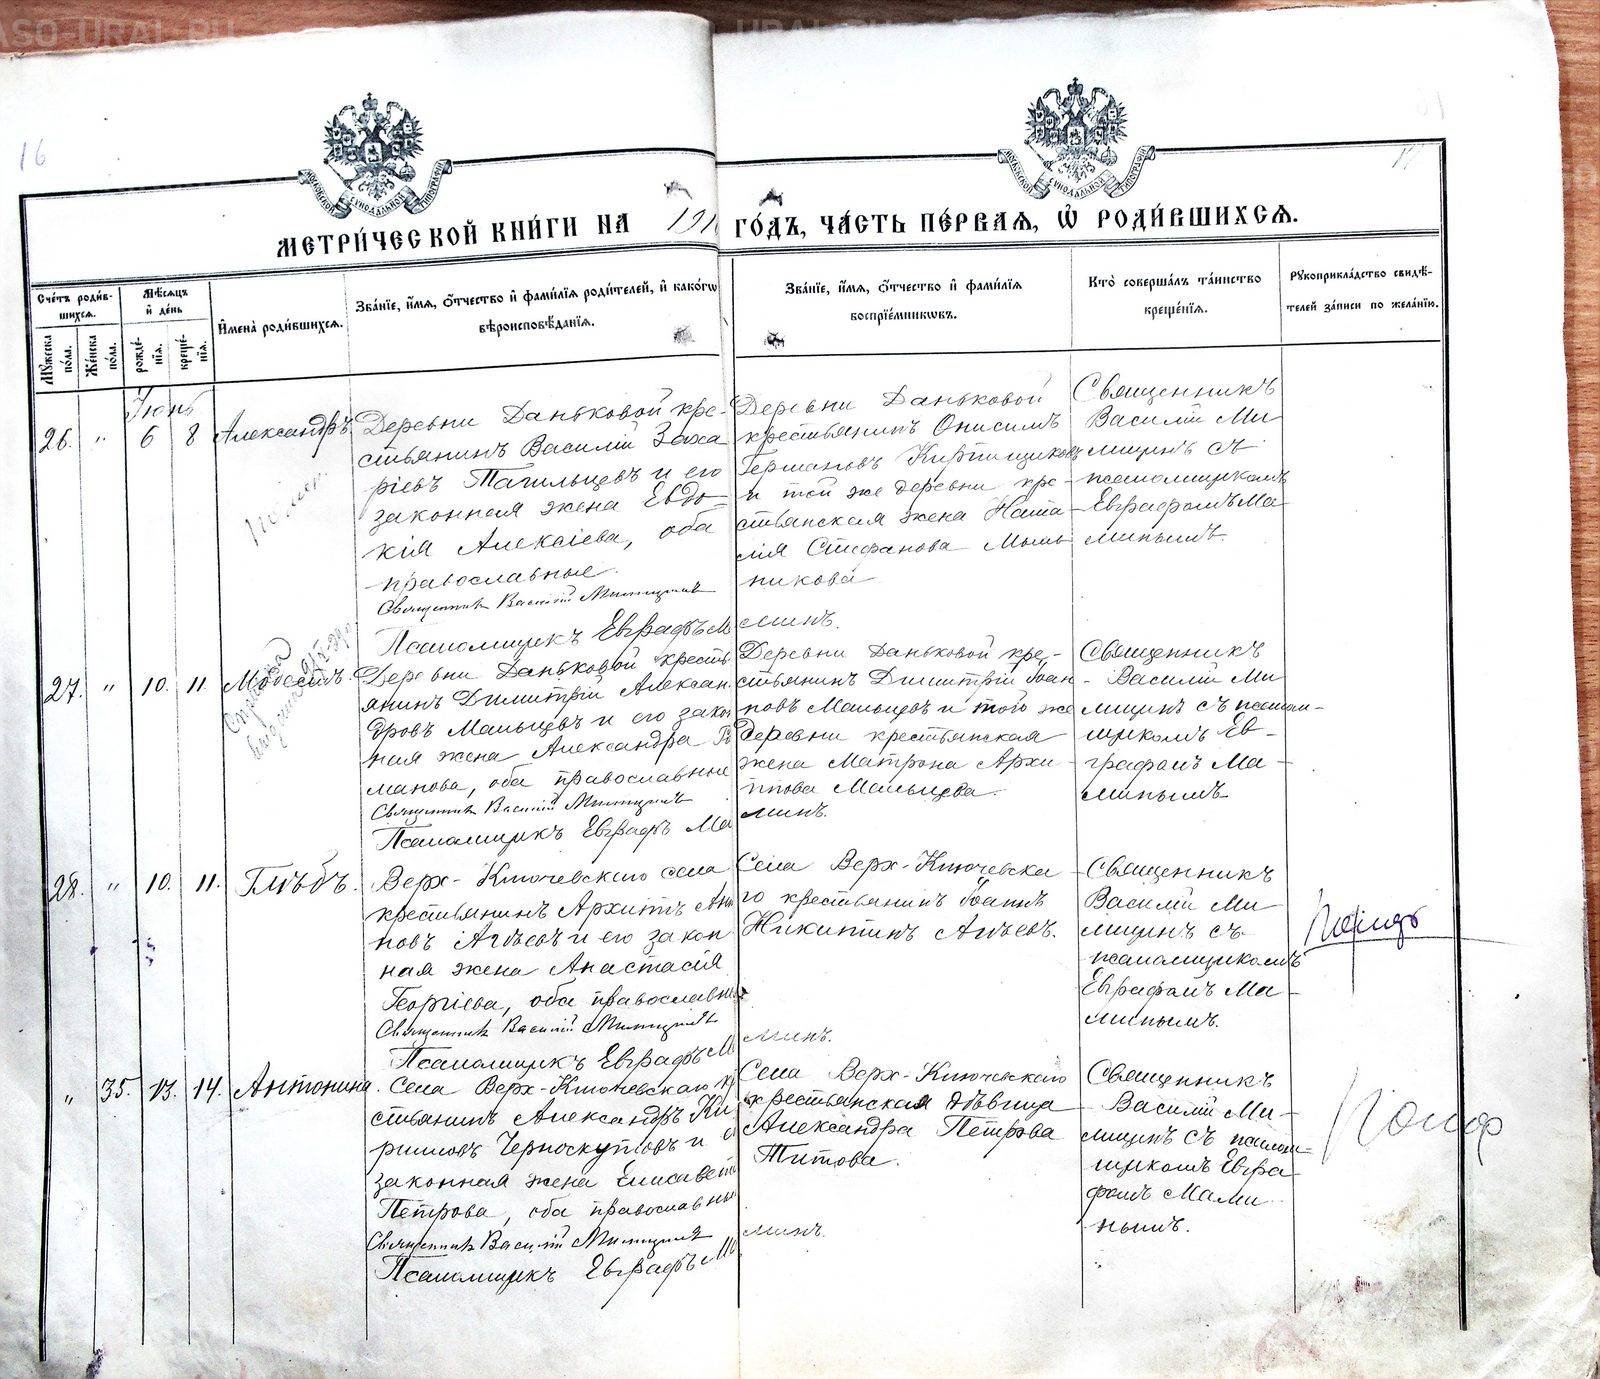 16
МЕТРИ́ЧЕСКОЙ КНИ́ГИ НА 191
ГО́ДЪ, ЧА́СТЬ ПЕ́РВАѦ, Ѡ҆ РОДИ́ВШИХСѦ.
Сче́тъ роди́в-
шихсѧ.
Мꙋ́жеска по́ла.
Же́нска по́ла.
Мѣ́сѧцъ и҆ де́нь
рожде́-
нїѧ.
креще́-
нїѧ.
И҆мена̀ роди́вшихсѧ.
Зва́нїе, и҆́мѧ, ѻ҆́тчество и҆ фами́лїѧ роди́телей, и҆ како́гѡ
вѣроисповѣ́данїѧ.
Зва́нїе, и҆́мѧ, ѻ҆́тчество и҆ фами́лїѧ
воспрїе́мниковъ.
Кто̀ соверша́лъ та́инство
креще́нїѧ.
Рꙋкоприкла́дство свидѣ́-
телей за́писи по жела́нїю.
Іюнь
26. " 6 8 Александръ
Деревни Даньковой кре-
стьянинъ Василій Заха
ріевъ Тагильцевъ и его
законная жена Евдо-
кія Алексіева, оба
православные.
Священникъ Василій Милицинъ
Псаломщикъ Евграфъ Ма
минъ.
Деревни Даньковой
крестьянинъ Онисимъ
Германовъ Кирпищиковъ
и той же деревни кре-
стьянская жена Ната-
лія Стефанова Мыль
никова
Священникъ
Василій Ми
лицинъ съ
псаломщикомъ
Евграфомъ Ма-
минымъ.
27. " 10. 11. Модестъ.
Деревни Даньковой кресть
янинъ Димитрій Алексан.
дровъ Мальцевъ и его закон
ная жена Александра Ро
манова, оба православные
Священникъ Василій Милицинъ
Псаломщикъ Евграфъ Ма
минъ.
Деревни Даньковой кре-
стьянинъ Димитрій Іоан
новъ Мальцевъ и той же
деревни крестьянская
жена Матрона Архи-
ппова Мальцева.
Священникъ
Василій Ми
лицинъ съ псалом-
щикомъ Ев-
графомъ Ма-
минымъ
28. " 10. 11. Глѣбъ.
Верх-Ключевского села
крестьянинъ Архипъ
новъ Агѣевъ и его закон
ная жена Анастасія
Георгіева, оба православные
Священникъ Василій Милицинъ
Псаломщикъ Евграфъ Ма
минъ.
Села Верх-Ключевска
го крестьянинъ Іоаннъ
Никитинъ Агѣевъ.
Священникъ
Василій Ми
лицинъ съ
псаломщикомъ
Евграфомъ Ма-
минымъ.
" 35. 13. 14. Антонина.
Села Верх-Ключевскаго кре
стьянинъ Александръ Ки
рилловъ Черноскутовъ и его
законная жена Елисавета
Петрова, оба православные
Священникъ Василій Милицинъ
Псаломщикъ Евграфъ Ма
минъ.
Села Верх-Ключевскаго
крестьянская дѣвица
Александра Петрова
Титова.
Священникъ
Василій Ми-
лицинъ съ псалом-
щикомъ Евгра-
фомъ Мами
нымъ.